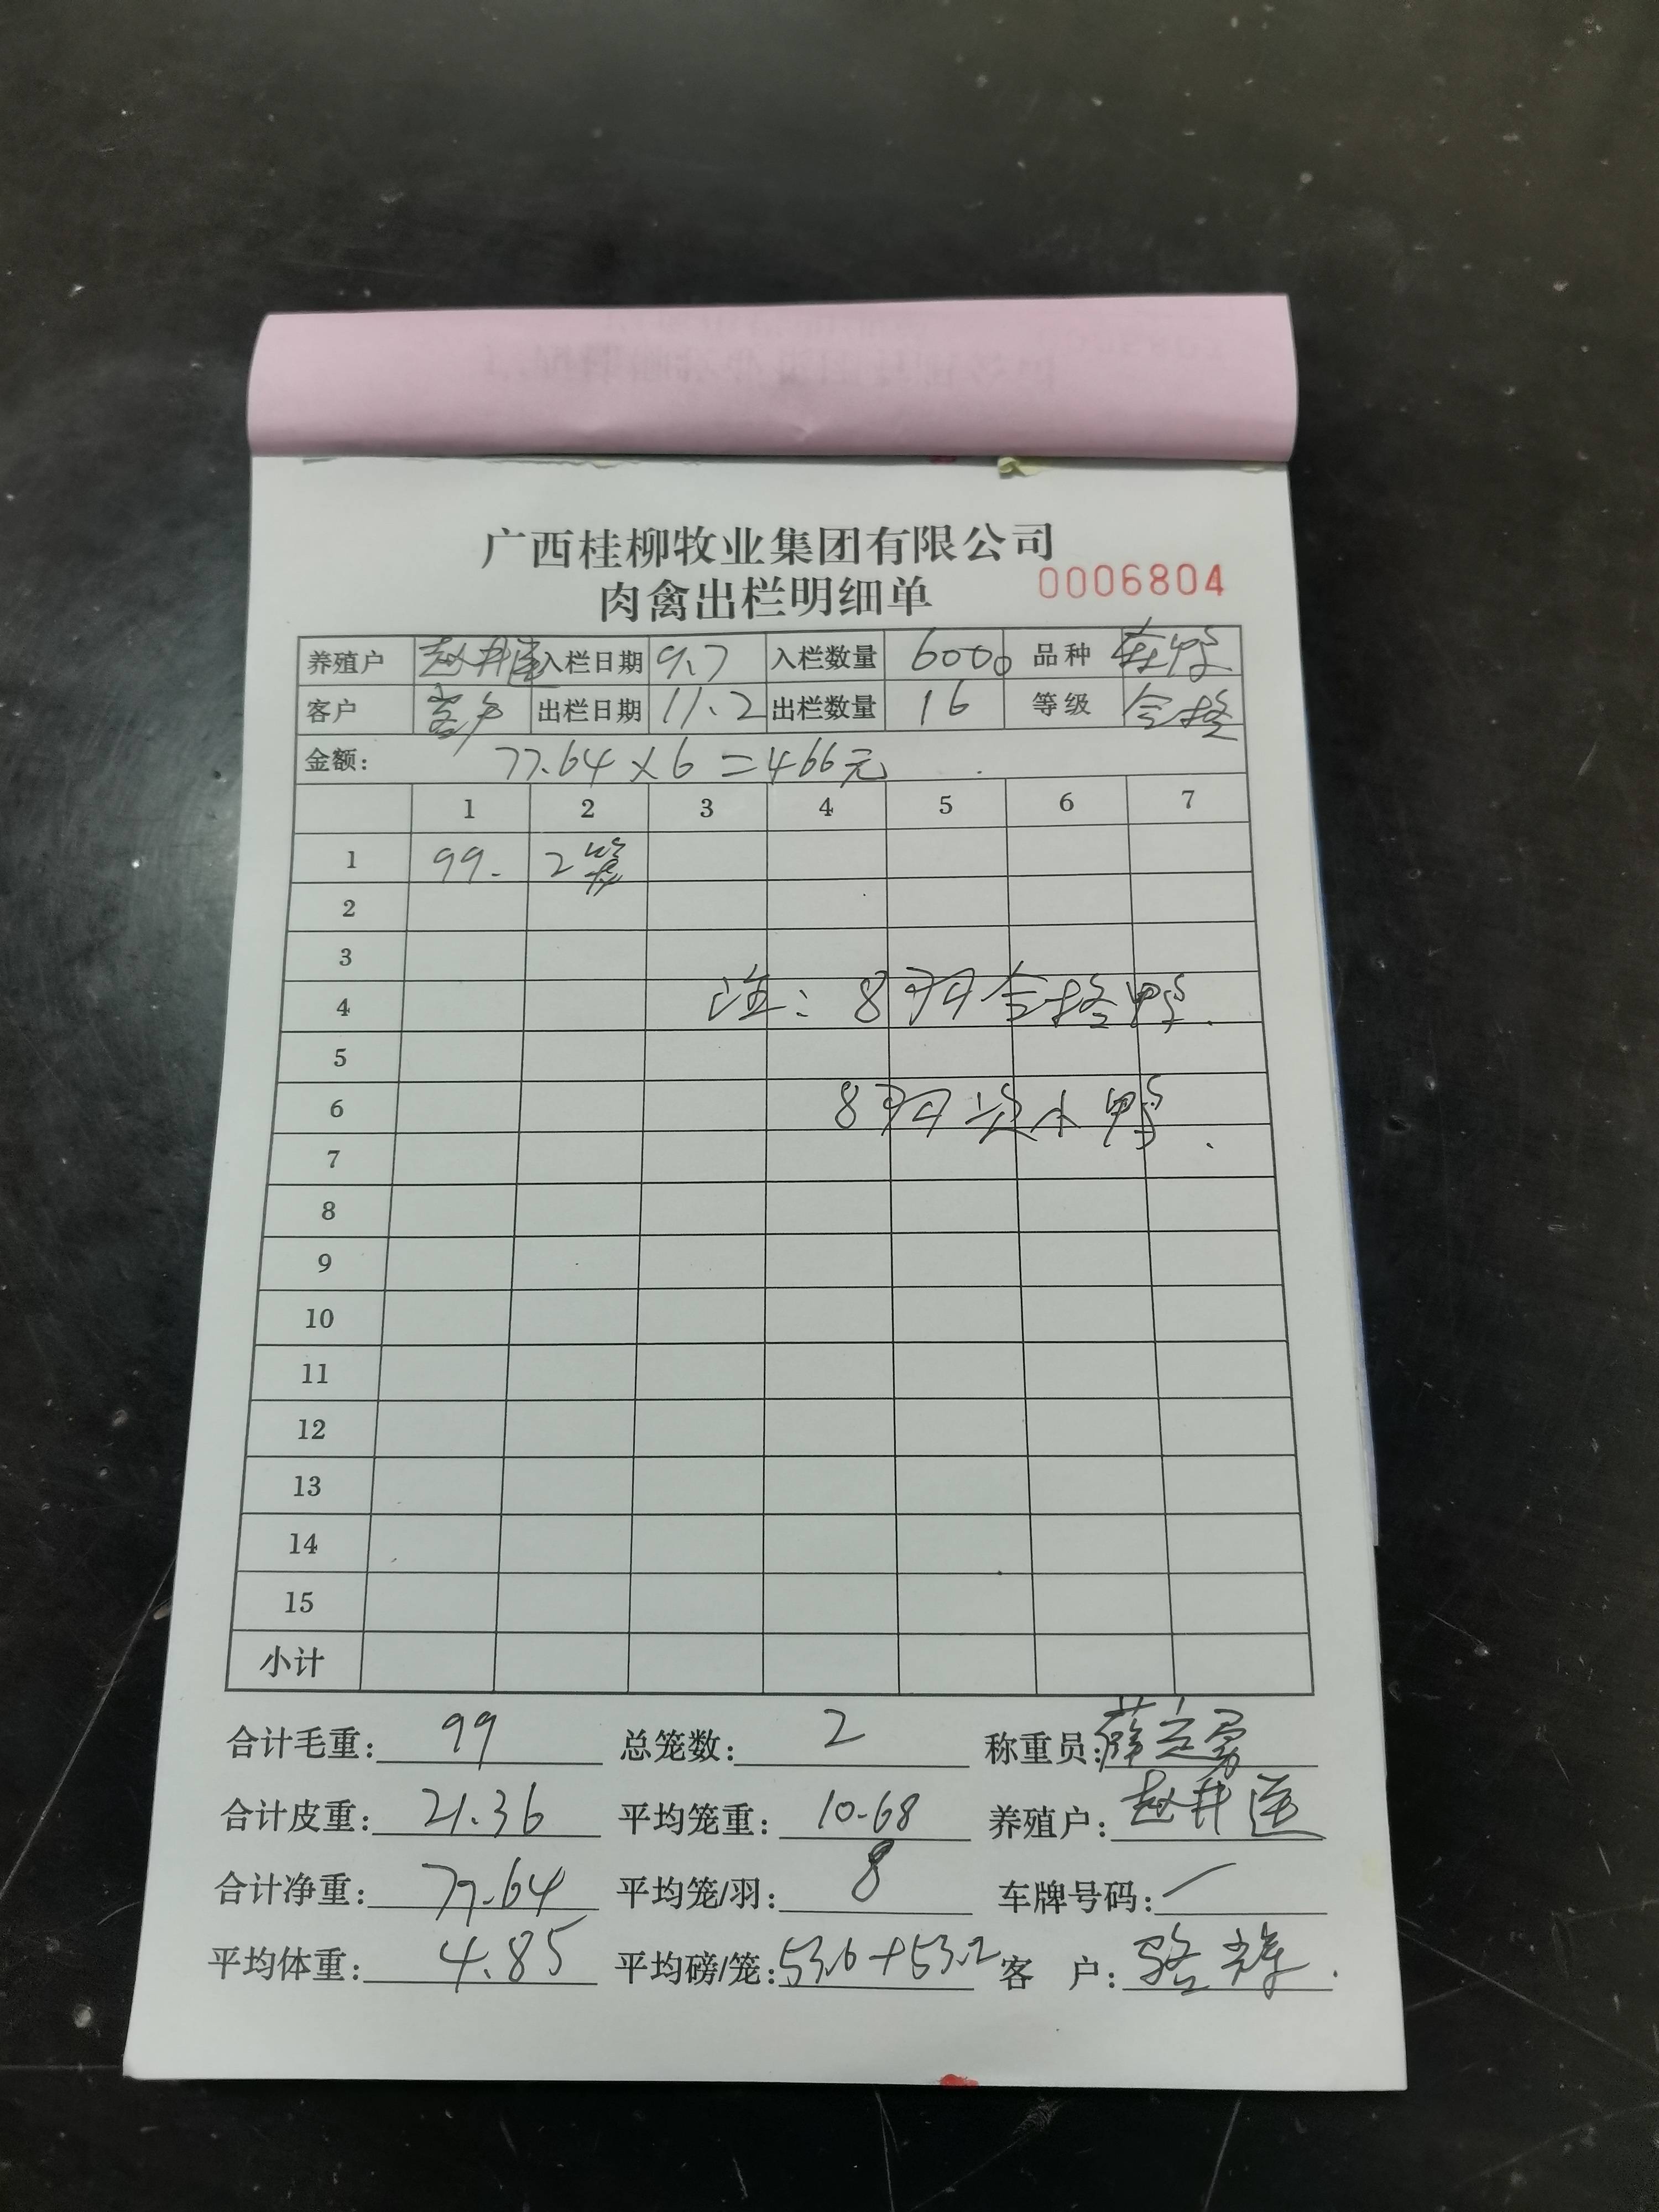 广西桂柳牧业集团有限公司
肉禽出栏明细单 0006804
养殖户 赵井 入栏日期 9.7 入栏数量 6000 品种 鸭
客户 客户 出栏日期 11.2 出栏数量 16 等级 合格
金额: 77.64×6=466元
1 2 3 4 5 6 7
1 99. 2笼
2
3
4 注: 8羽合格鸭.
5
6 8羽次小鸭.
7
8
9
10
11
12
13
14
15
小计
合计毛重: 99 总笼数: 2 称重员: 薛志勇
合计皮重: 21.36 平均笼重: 10.68 养殖户: 赵井
合计净重: 77.64 平均笼/羽: 8 车牌号码: /
平均体重: 4.85 平均磅/笼: 53.6+53.2 客 户: 骆